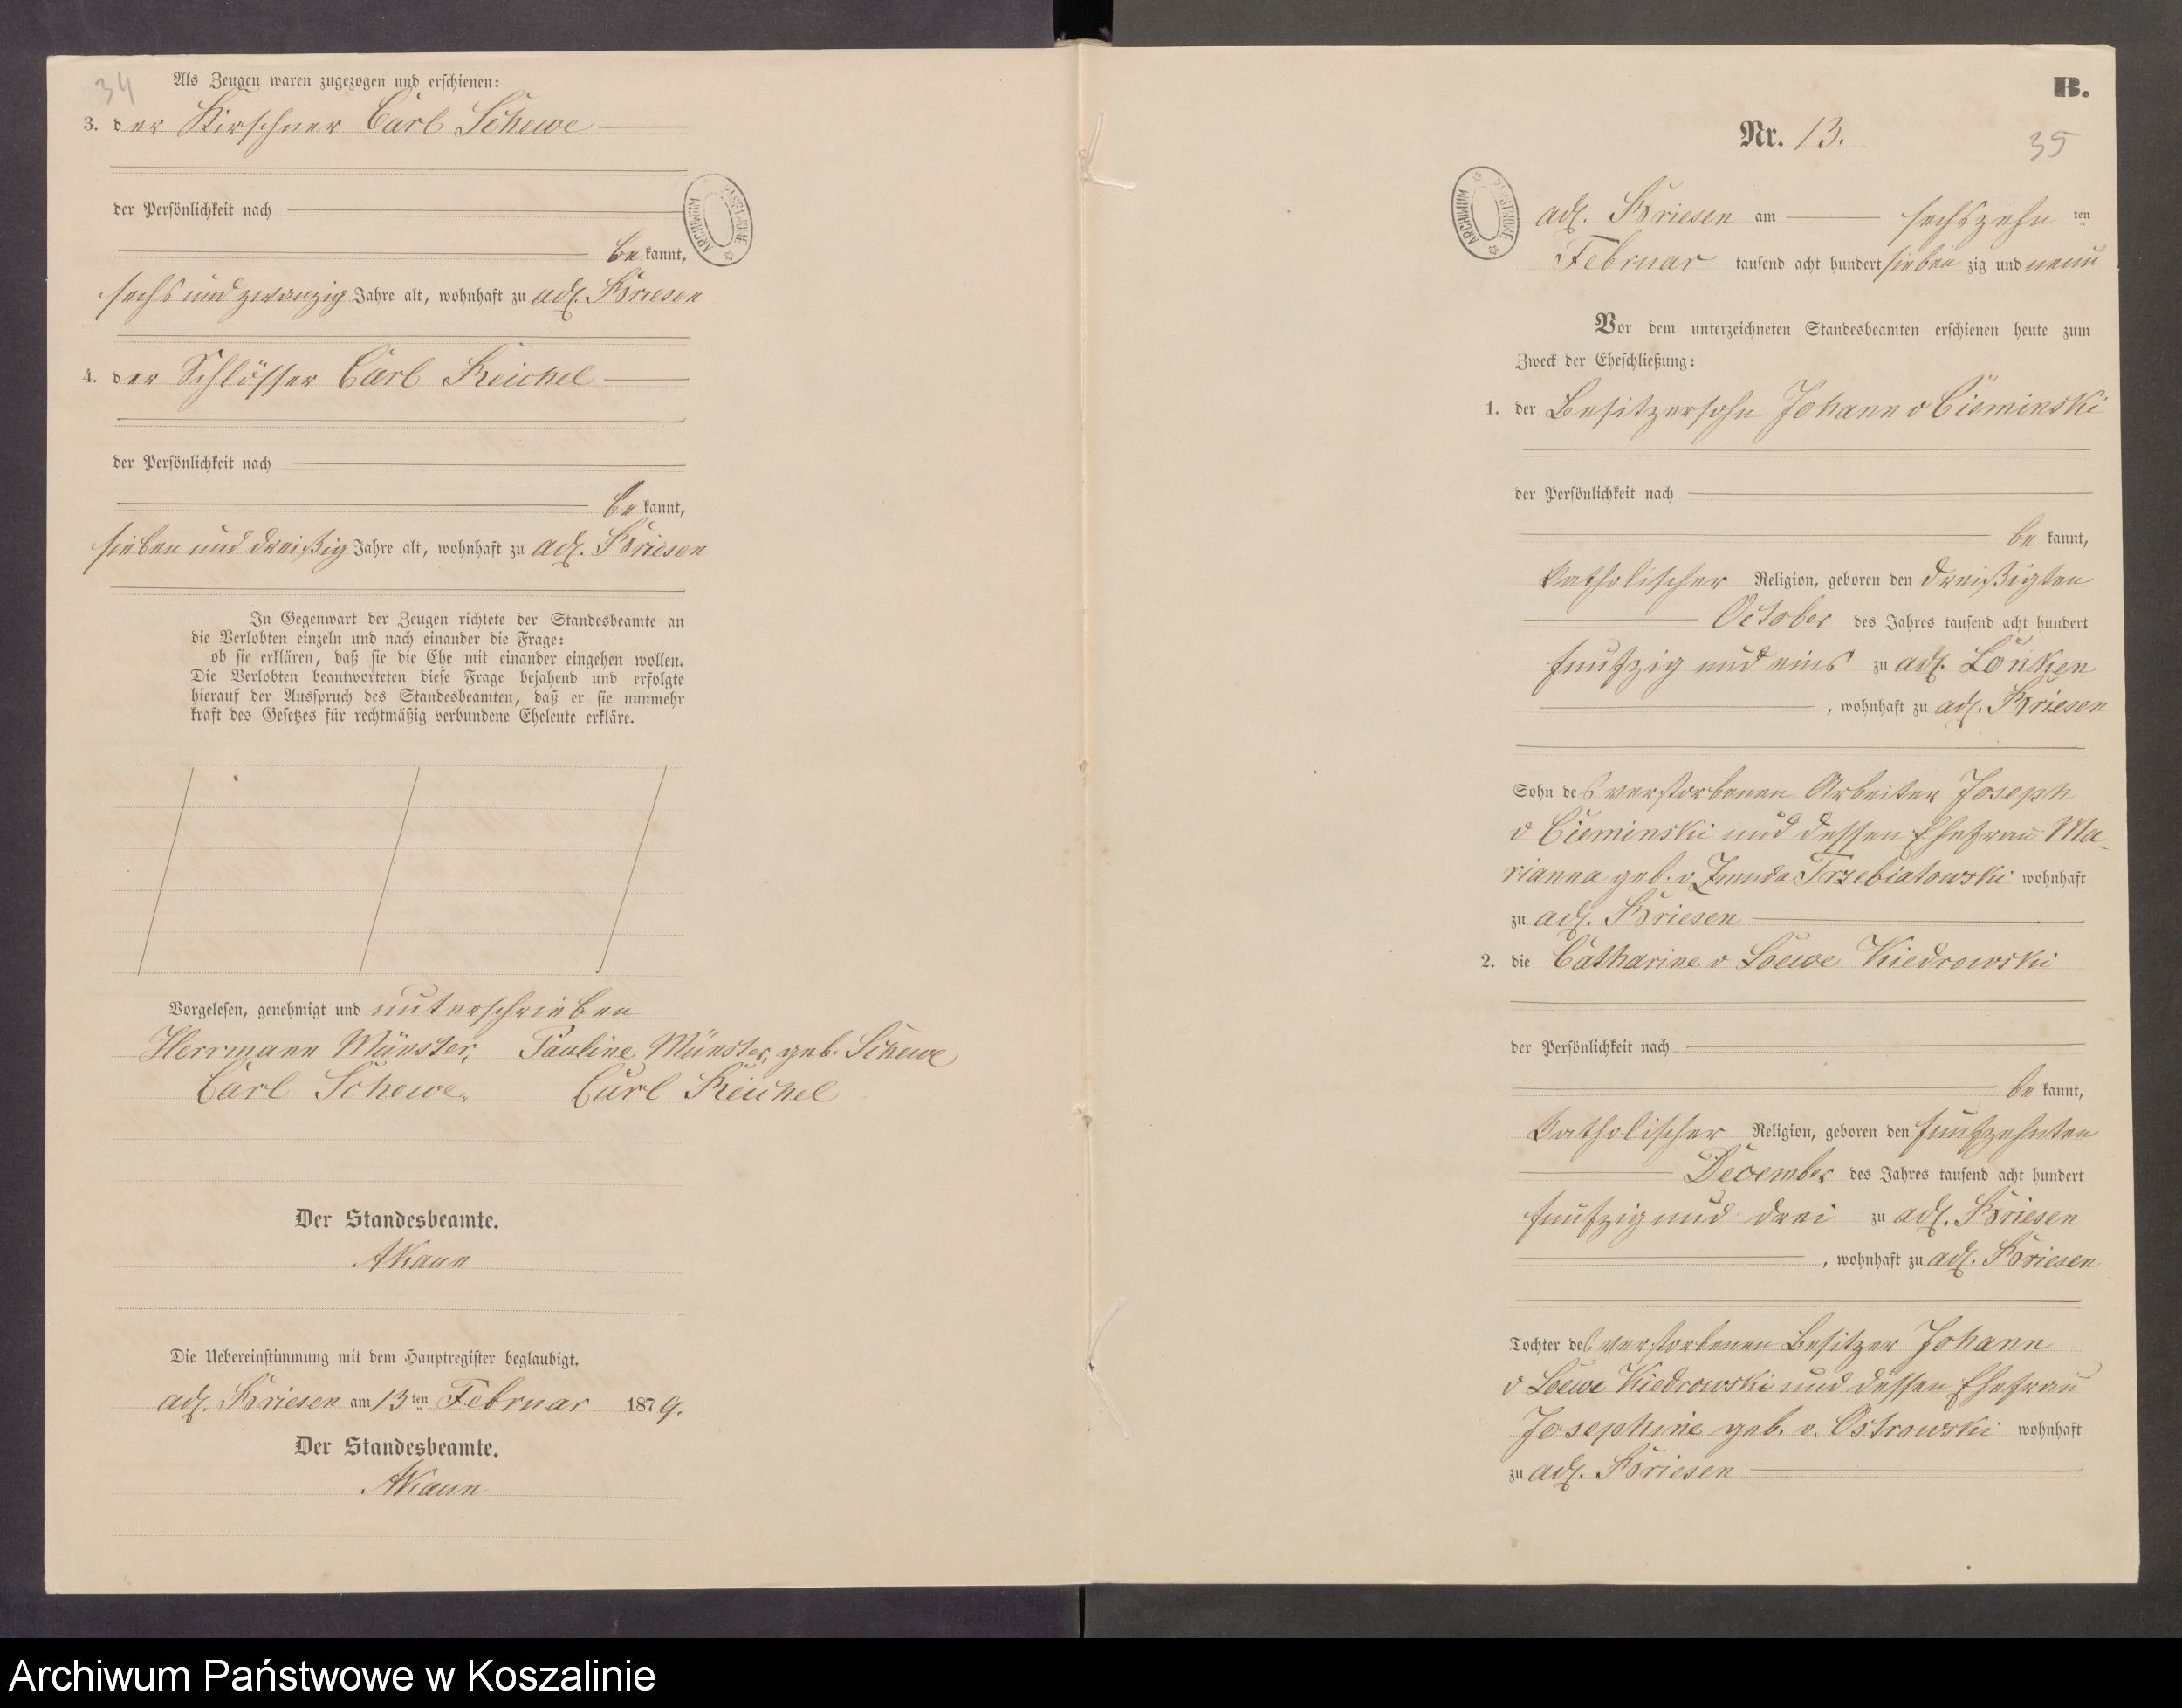 34
Als Zeugen waren zugezogen und erschienen:
3. der Kirschner Carl Schewe
der Persönlichkeit nach
be kannt,
sechs und zwanzig Jahre alt, wohnhaft zu adl. Briesen
4. der Schlosser Carl Reichel
der Persönlichkeit nach
be kannt,
sieben und dreißig Jahre alt, wohnhaft zu adl. Briesen
In Gegenwart der Zeugen richtete der Standesbeamte an
die Verlobten einzeln und nach einander die Frage:
ob sie erklären, daß sie die Ehe mit einander eingehen wollen.
Die Verlobten beantworteten diese Frage bejahend und erfolgte
hierauf der Ausspruch des Standesbeamten, daß er sie nunmehr
kraft des Gesetzes für rechtmäßig verbundene Eheleute erkläre.
Vorgelesen, genehmigt und unterschrieben
Herrmann Münster, Pauline Münster, geb. Schewe
Carl Schewe. Carl Reichel
Der Standesbeamte.
AKaun
Die Uebereinstimmung mit dem Hauptregister beglaubigt.
adl. Briesen am 13 ten Februar 1879.
Der Standesbeamte.
AKaun
ARCHIWUM PAŃSTWOWE
B.
Nr. 13.
35
ARCHIWUM PAŃSTWOWE
adl. Briesen am sechszehn ten
Februar tausend acht hundert sieben zig und neun
Vor dem unterzeichneten Standesbeamten erschienen heute zum
Zweck der Eheschließung:
1. der Besitzersohn Johann v Cieminski
der Persönlichkeit nach
be kannt,
katholischer Religion, geboren den dreißigten
October des Jahres tausend acht hundert
funfzig und eins zu adl. Lonken
, wohnhaft zu adl. Briesen
Sohn des verstorbenen Arbeiter Joseph
v Cieminski und dessen Ehefrau Ma-
rianna geb. v Zmuda Trzebiatowski wohnhaft
zu adl. Briesen
2. die Catharine v Loewe Kiedrowski
der Persönlichkeit nach
be kannt,
katholischer Religion, geboren den funfzehnten
December des Jahres tausend acht hundert
funfzig und drei zu adl. Briesen
, wohnhaft zu adl. Briesen
Tochter des verstorbenen Besitzer Johann
v Loewe Kiedrowski und dessen Ehefrau
Josephine geb. v. Ostrowski wohnhaft
zu adl. Briesen
Archiwum Państwowe w Koszalinie